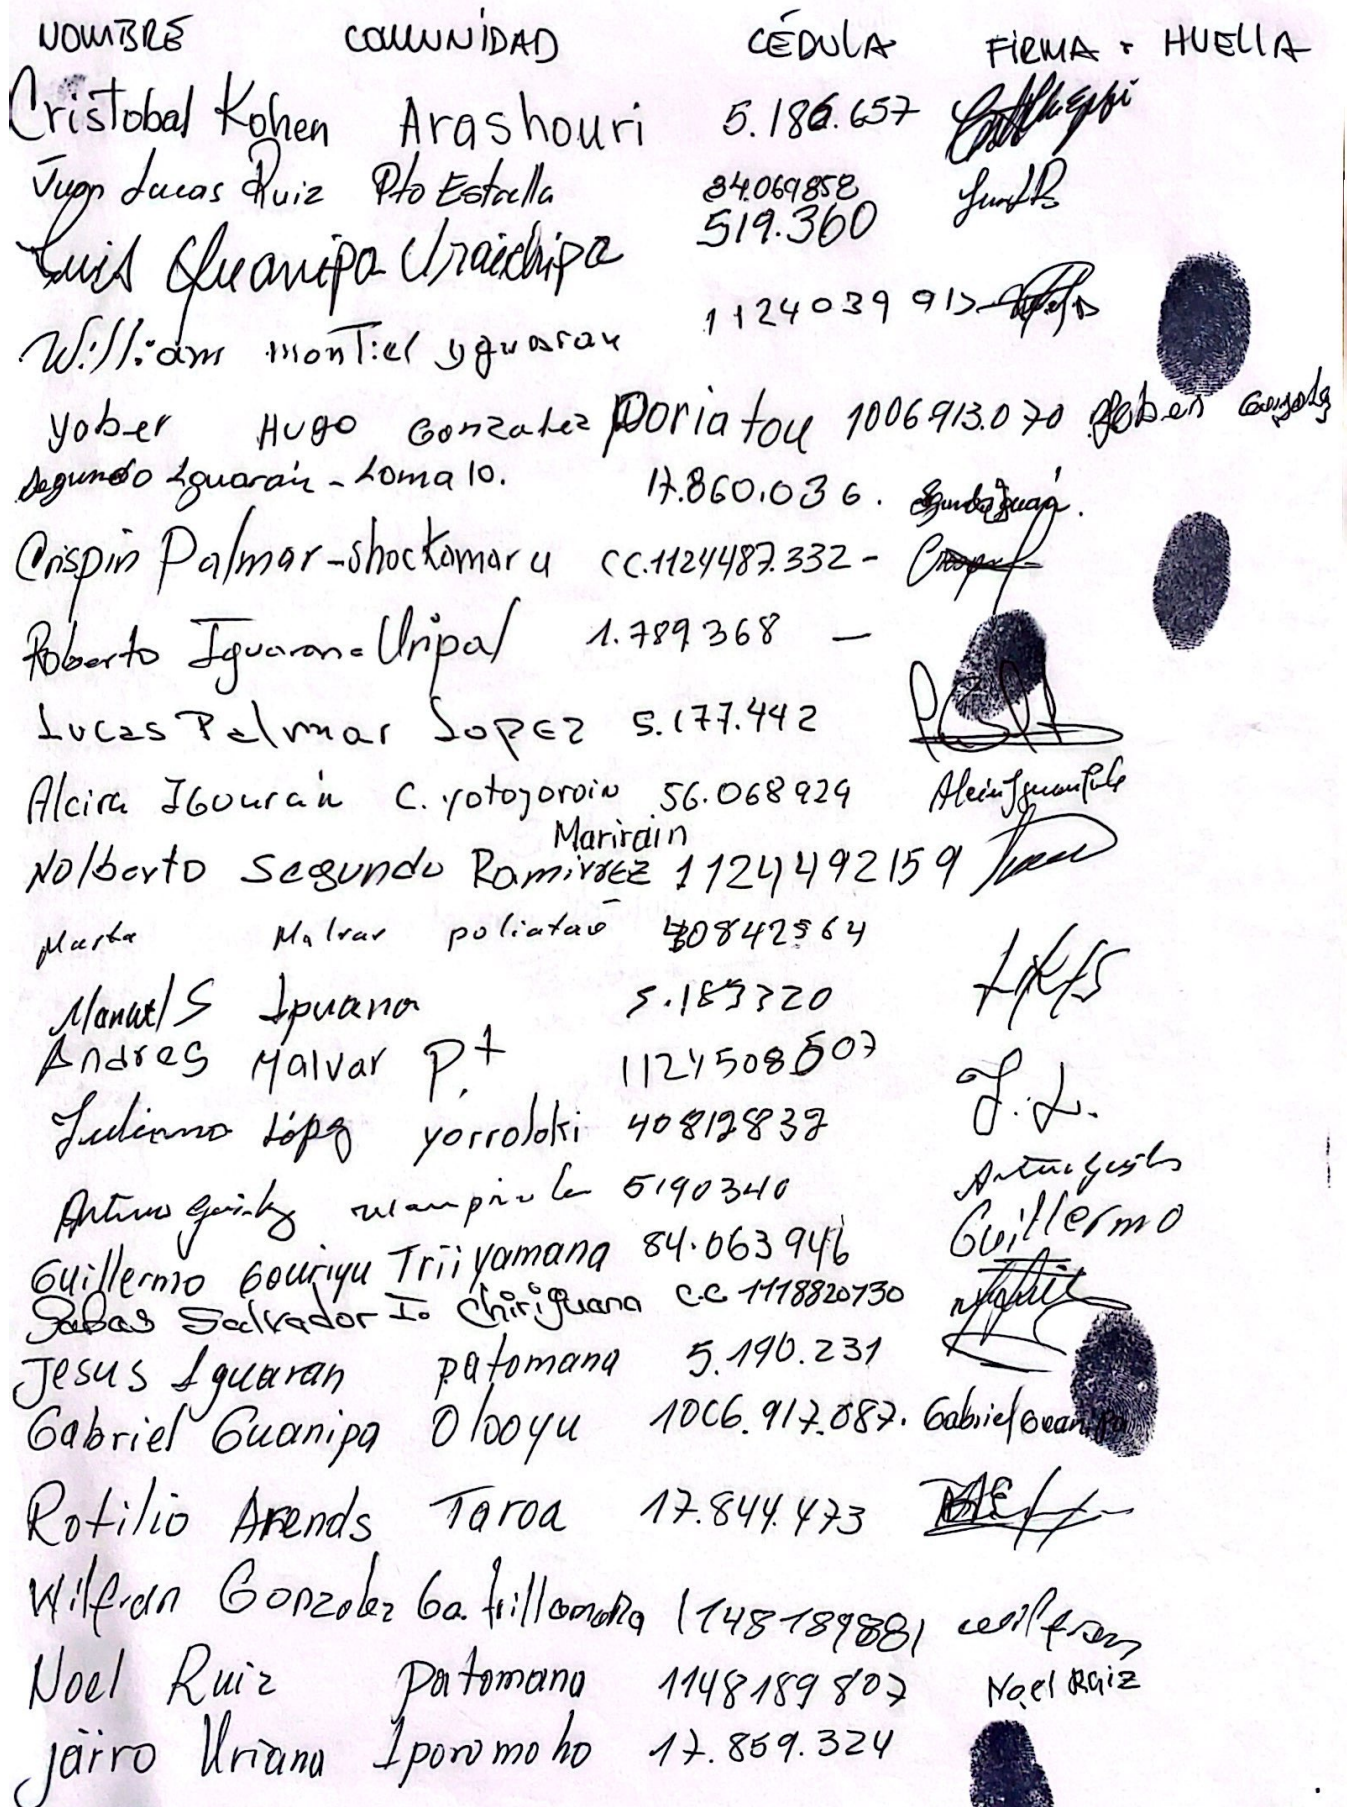 NOMBRE COMUNIDAD CÉDULA FIRMA + HUELLA
Cristobal Kohen Arashouri 5.186.657
Juan Lucas Ruiz Pto Estrella 84.069858
Luis Guanipa Uraichipa 519.360
William montiel yguarau 1124039 913
yober Hugo Gonzalez Poriatou 1006913.070 yober Gonzalez
Segundo Iguarán - Loma 10. 17.860.036. Segundo Iguarán.
Crispin Palmar - shockamaru CC.1124487.332 -
Roberto Iguaran - Uripal 1.789368 —
Lucas Palmar Lopez 5.177.442
Alcira IGourán C. yotojoroin 56.068929
Marirain
Nolberto Segundo Ramirrez 1124492159
Marta Malvar poliatao 40842564
Manuel S Ipuana 5.183320
Andres Malvar P.t 1124508507
Juliana López yorroloki 40812832 J.L.
Arturo 5190340
Guillermo Gouriyu Triiyamana 84.063946 Guillermo
Sabas Salvador I. Chiriguana C.C 1118820730
Jesus Iguaran patomana 5.190.231
Gabriel Guanipa Olooyu 1006.917.087. Gabriel Guanipa
Rotilio Arends Taroa 17.844.473
Wilfran Gonzalez 1148189881 wilfran
Noel Ruiz patomana 1148189807 Noel Ruiz
jairro Uriana Iporomoho 17.859.324